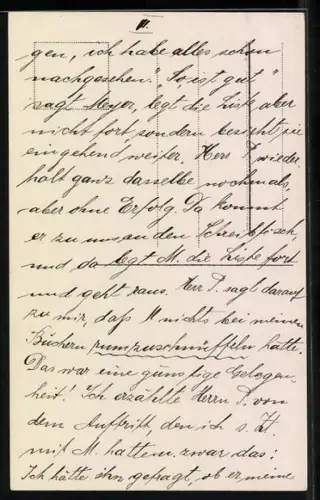 III.
gen, ich habe alles schon
nachgesehen." "So ist gut"
sagt Meyer, legt die Liste aber
nicht fort, sondern besieht sie
eingehend weiter. Herr P. wieder-
holt ganz dasselbe nochmals,
aber ohne Erfolg. Da kommt
er zu uns an den Schreibtisch,
und da legt M. die Liste fort
und geht raus. Herr P. sagt darauf
zu mir, daß M nichts bei meinen
Büchern rumzuschnüffeln hätte.
Das war eine günstige Gelegen-
heit! Ich erzählte Herrn P. von
dem Auftritt, den ich s. Zt.
mit M. hatte u. zwar das:
Ich hätte ihn gefragt, ob er meine